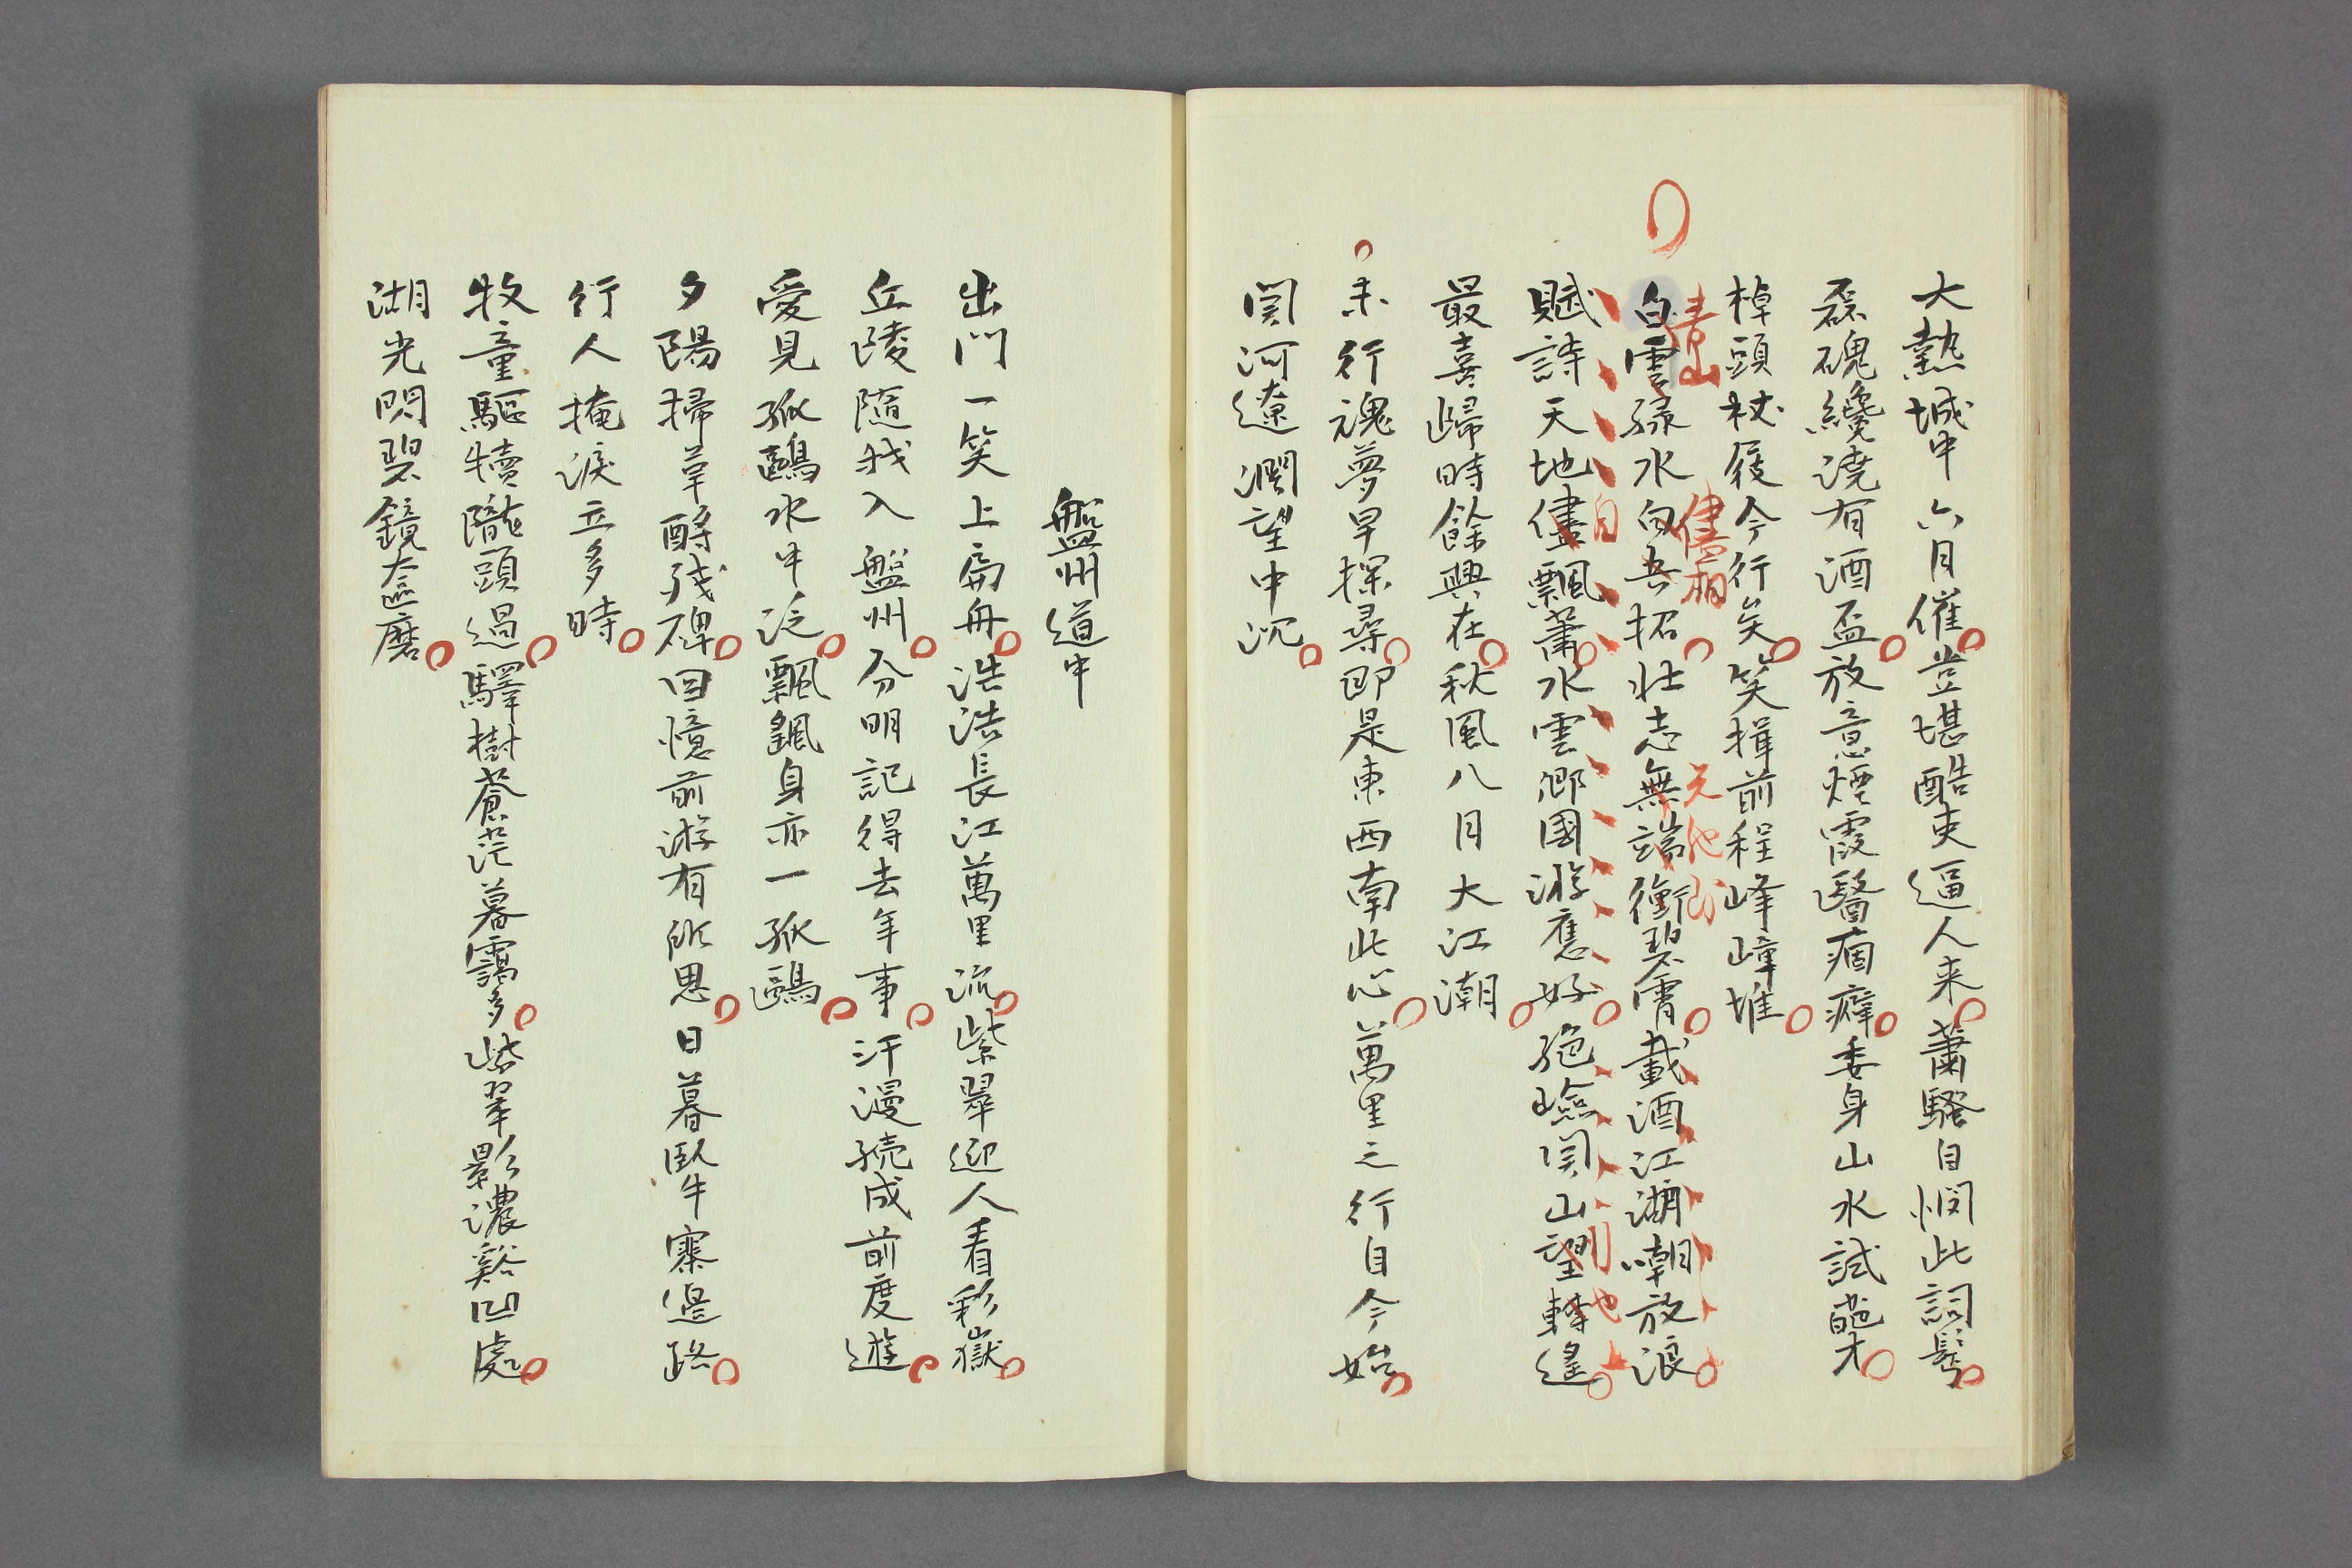 大熱城中六月催豈堪酷吏逼人来蕭騷自憫此詞髩
磊磈纔澆有酒盃放意煙霞醫痼癖委身山水試葩才
棹頭杖屐今行矣笑揖前程峰嶂堆
青山 儘相
白雲緑水向吾招壮志無端衝碧霄載酒江湖嘲放浪
賦詩天地儘飄蕭水雲郷國游應好絶嶮関山望轉遥
最喜歸時餘興在秋風八月大江潮
未行魂夢早探尋即是東西南此心萬里之行自今始
関河遼濶望中沉
盤州道中
出門一笑上扁舟浩浩長江萬里流紫翠迎人看彩嶽
丘陵隨我入盤州分明記得去年事汗漫続成前度遊
愛見孤鷗水中泛飄飄身亦一孤鷗
夕陽掃草酹残碑回憶前游有所思日暮臥牛寨邊路
行人掩涙立多時
牧童驅犢隴頭過驛樹蒼茫暮靄多紫翠影濃谿凹處
湖光閃碧鏡奩磨